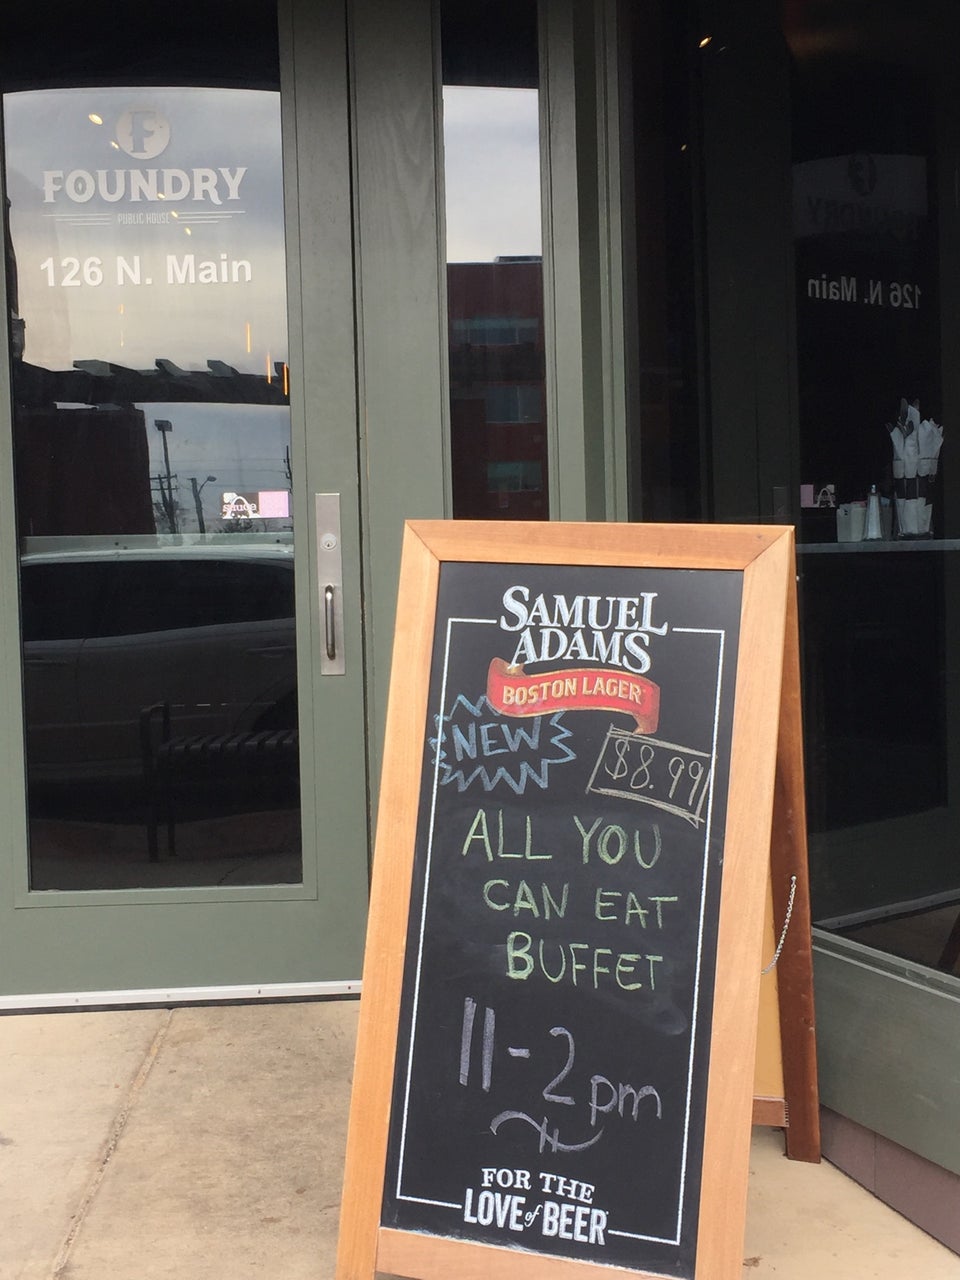 F
FOUNDRY
PUBLIC HOUSE
126 N. Main
126 N. Main
SAMUEL
ADAMS
BOSTON LAGER
NEW
$8.99
ALL YOU
CAN EAT
BUFFET
11-2pm
FOR THE
LOVE of BEER